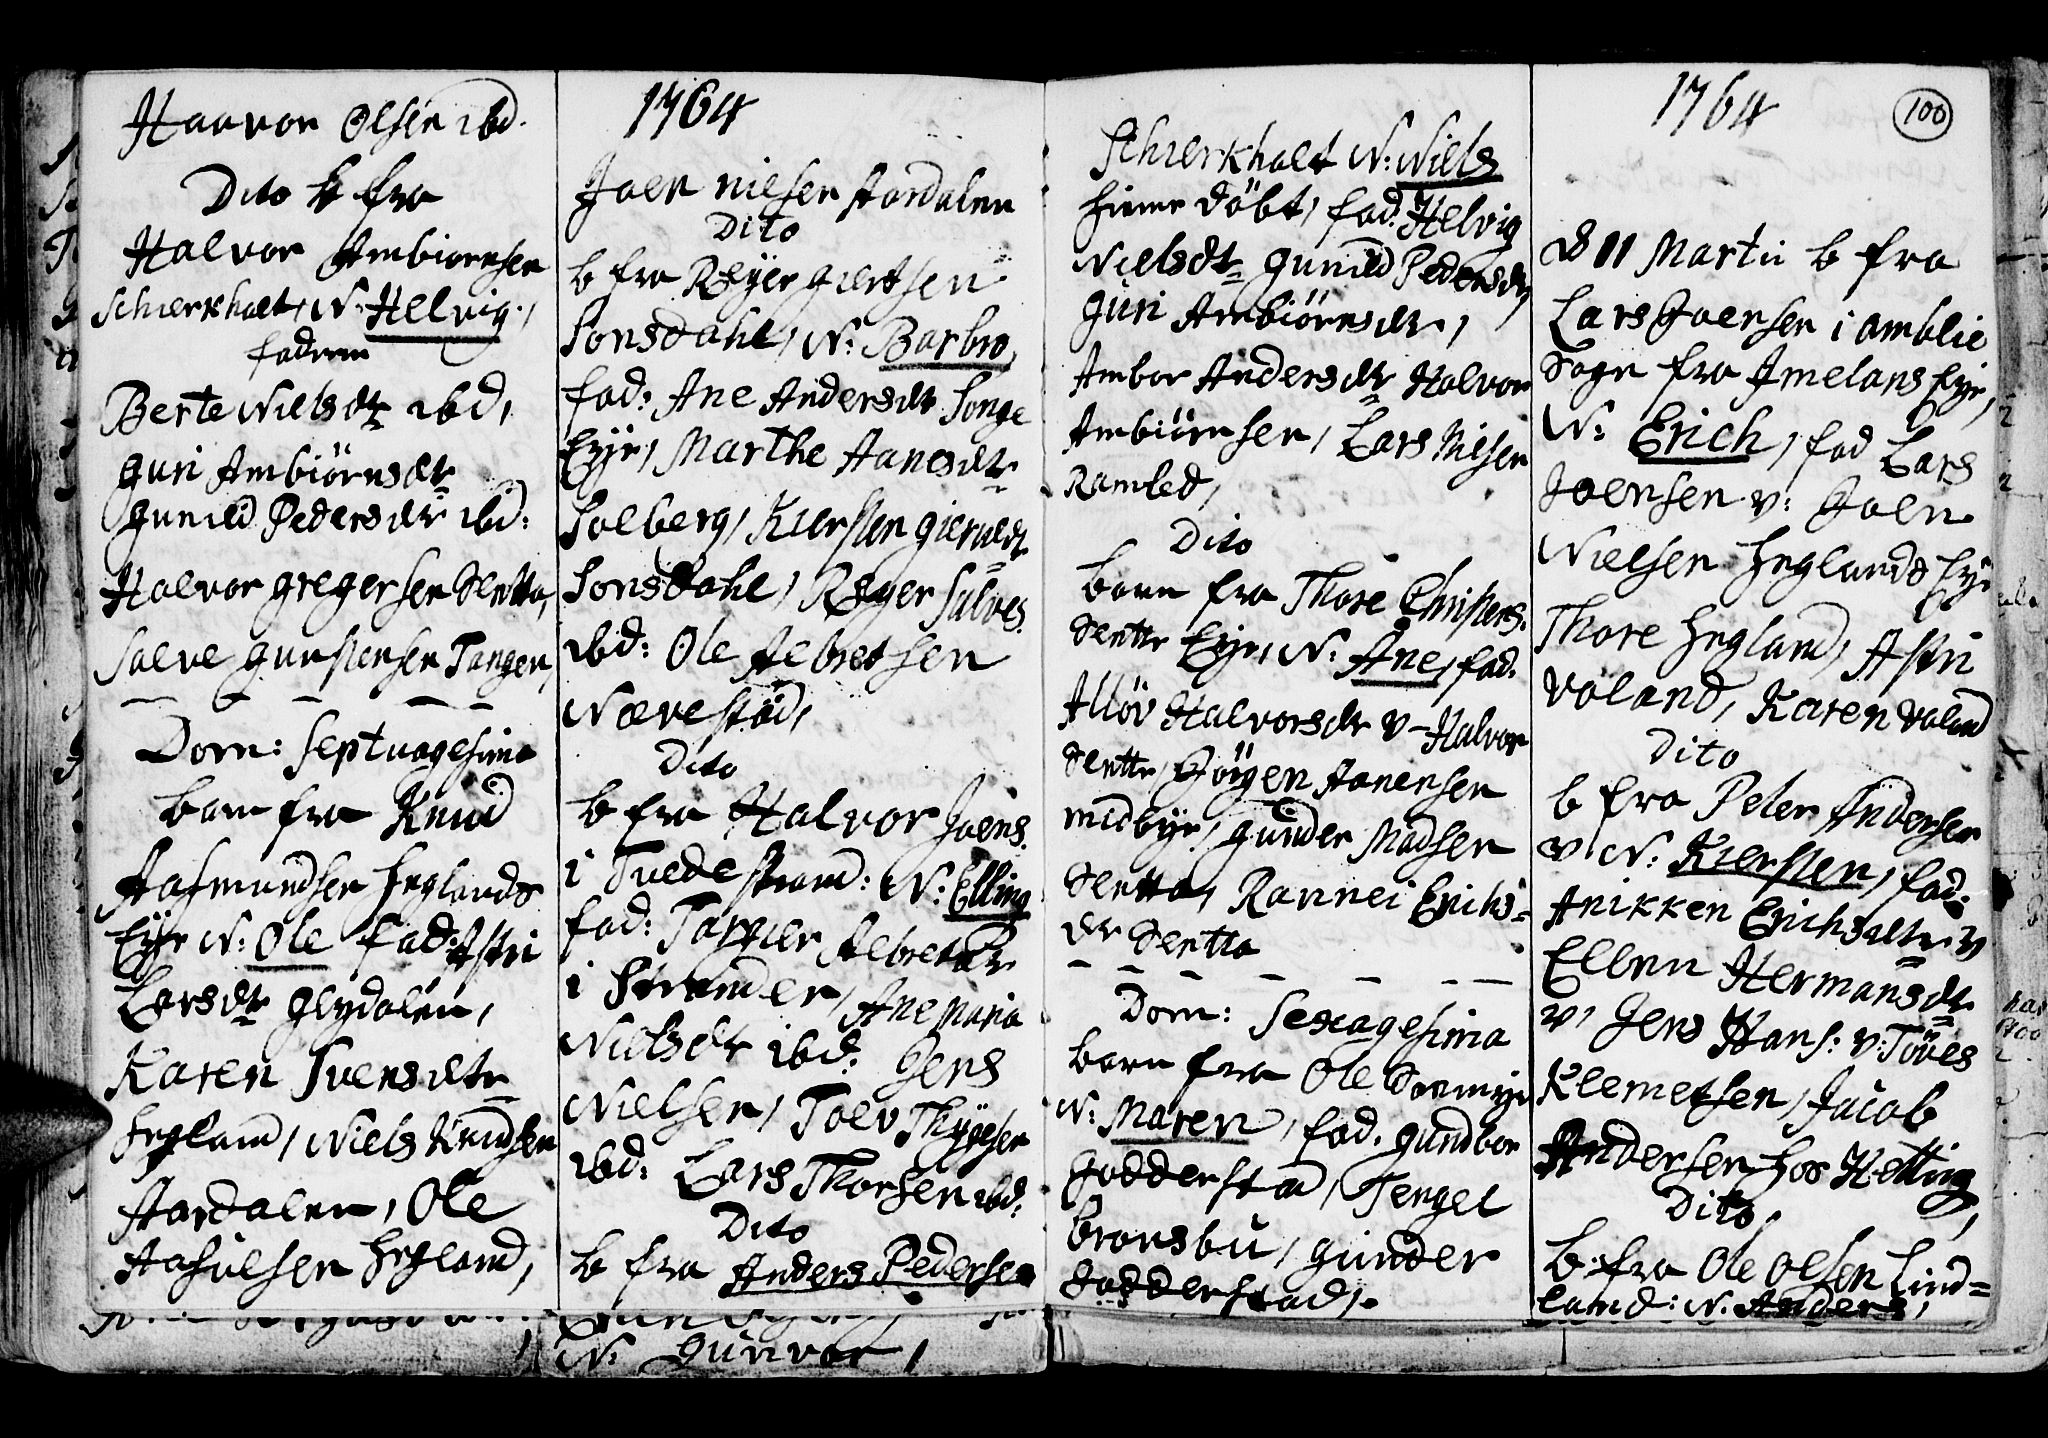 Haavor Olsen ibd.
Dito b fra
Halvor Ambiørnsen
Schierkholt, N: Helvig,
fadrene
Berte Nielsdtr ibd,
Guri Ambiörnsdtr
Gunild Pedersdtr ibd:
Halvor Gregersen Slette,
Salve Gunstensen Tangen,
Dom: Septuagesima
barn fra Knud
Aasmundsen Heglands
Eye N: Ole fad: Astri
Larsdtr Glydalen,
Karen Svensdtr
Hegland, Niels Knudsen
Aardalen, Ole
Aasulsen Hegland,
1764
Joen Nielsen Aardalen
Dito
b fra Reyer Giertsen
Sonsdahl, N: Barbro,
fad: Ane Andersdtr Songe
Eye, Marthe Aanesdtr
Solberg, Kiersten Gierulsdt
Sonsdahl, Reyer Salves.
ibd: Ole Aebretsen
Næxestød,
Dito
b fra Halvor Joens.
i Tvedestrand: N: Elling
fad: Tarjer Aebretsdtr
i Stranden, Ane Maria
Nielsdtr ibd: Jens
Nielsen, Tolv Thygesen
ibd: Lars Thorsen ibd:
Dito
b fra Anders Pedersen
N: Gunvor,
Schierkholt N: Niels
hieme döbt, fad: Helvig
Nielsdtr Gunild Pedersdtr
Guri Ambiörnsdtr,
Ambor Andersdtr Halvor
Ambiörnsen, Lars Nilsen
Ramled,
Dito
barn fra Thore Christens.
Slette Eye, N: Ane, fad.
Alløv Halvorsdtr v Halvor
Slette, Jörgen Aanensen
Midbye, Gunder Madsen
Sletta, Rannei Erichs=
dr Sletta
Dom: Sexagesima
barn fra Ole Sonmyr
N: Maren, fad. Gundbor
Godderstad, Tengel
Bronsbu, Gunder
Godderstad,
1764
100
d 11 Martii b fra
Lars Joensen i Amblie
Sogn fra Imelans Eye,
N: Erich, fad Lars
Joensen v: Joen
Nielsen Heglands Eye
Thore Hegland, Astri
Voland, Karen Voland
Dito
b fra Peter Andersen
v N: Kiersten, fad:
Anikken Erichsdtr v
Ellen Hermansdtr
v, Jens Hans: v: Töles
Klemetsen, Jacob
Andersen hos Ketting,
Dito
b fra Ole Olsen Lind=
land: N. Anders,